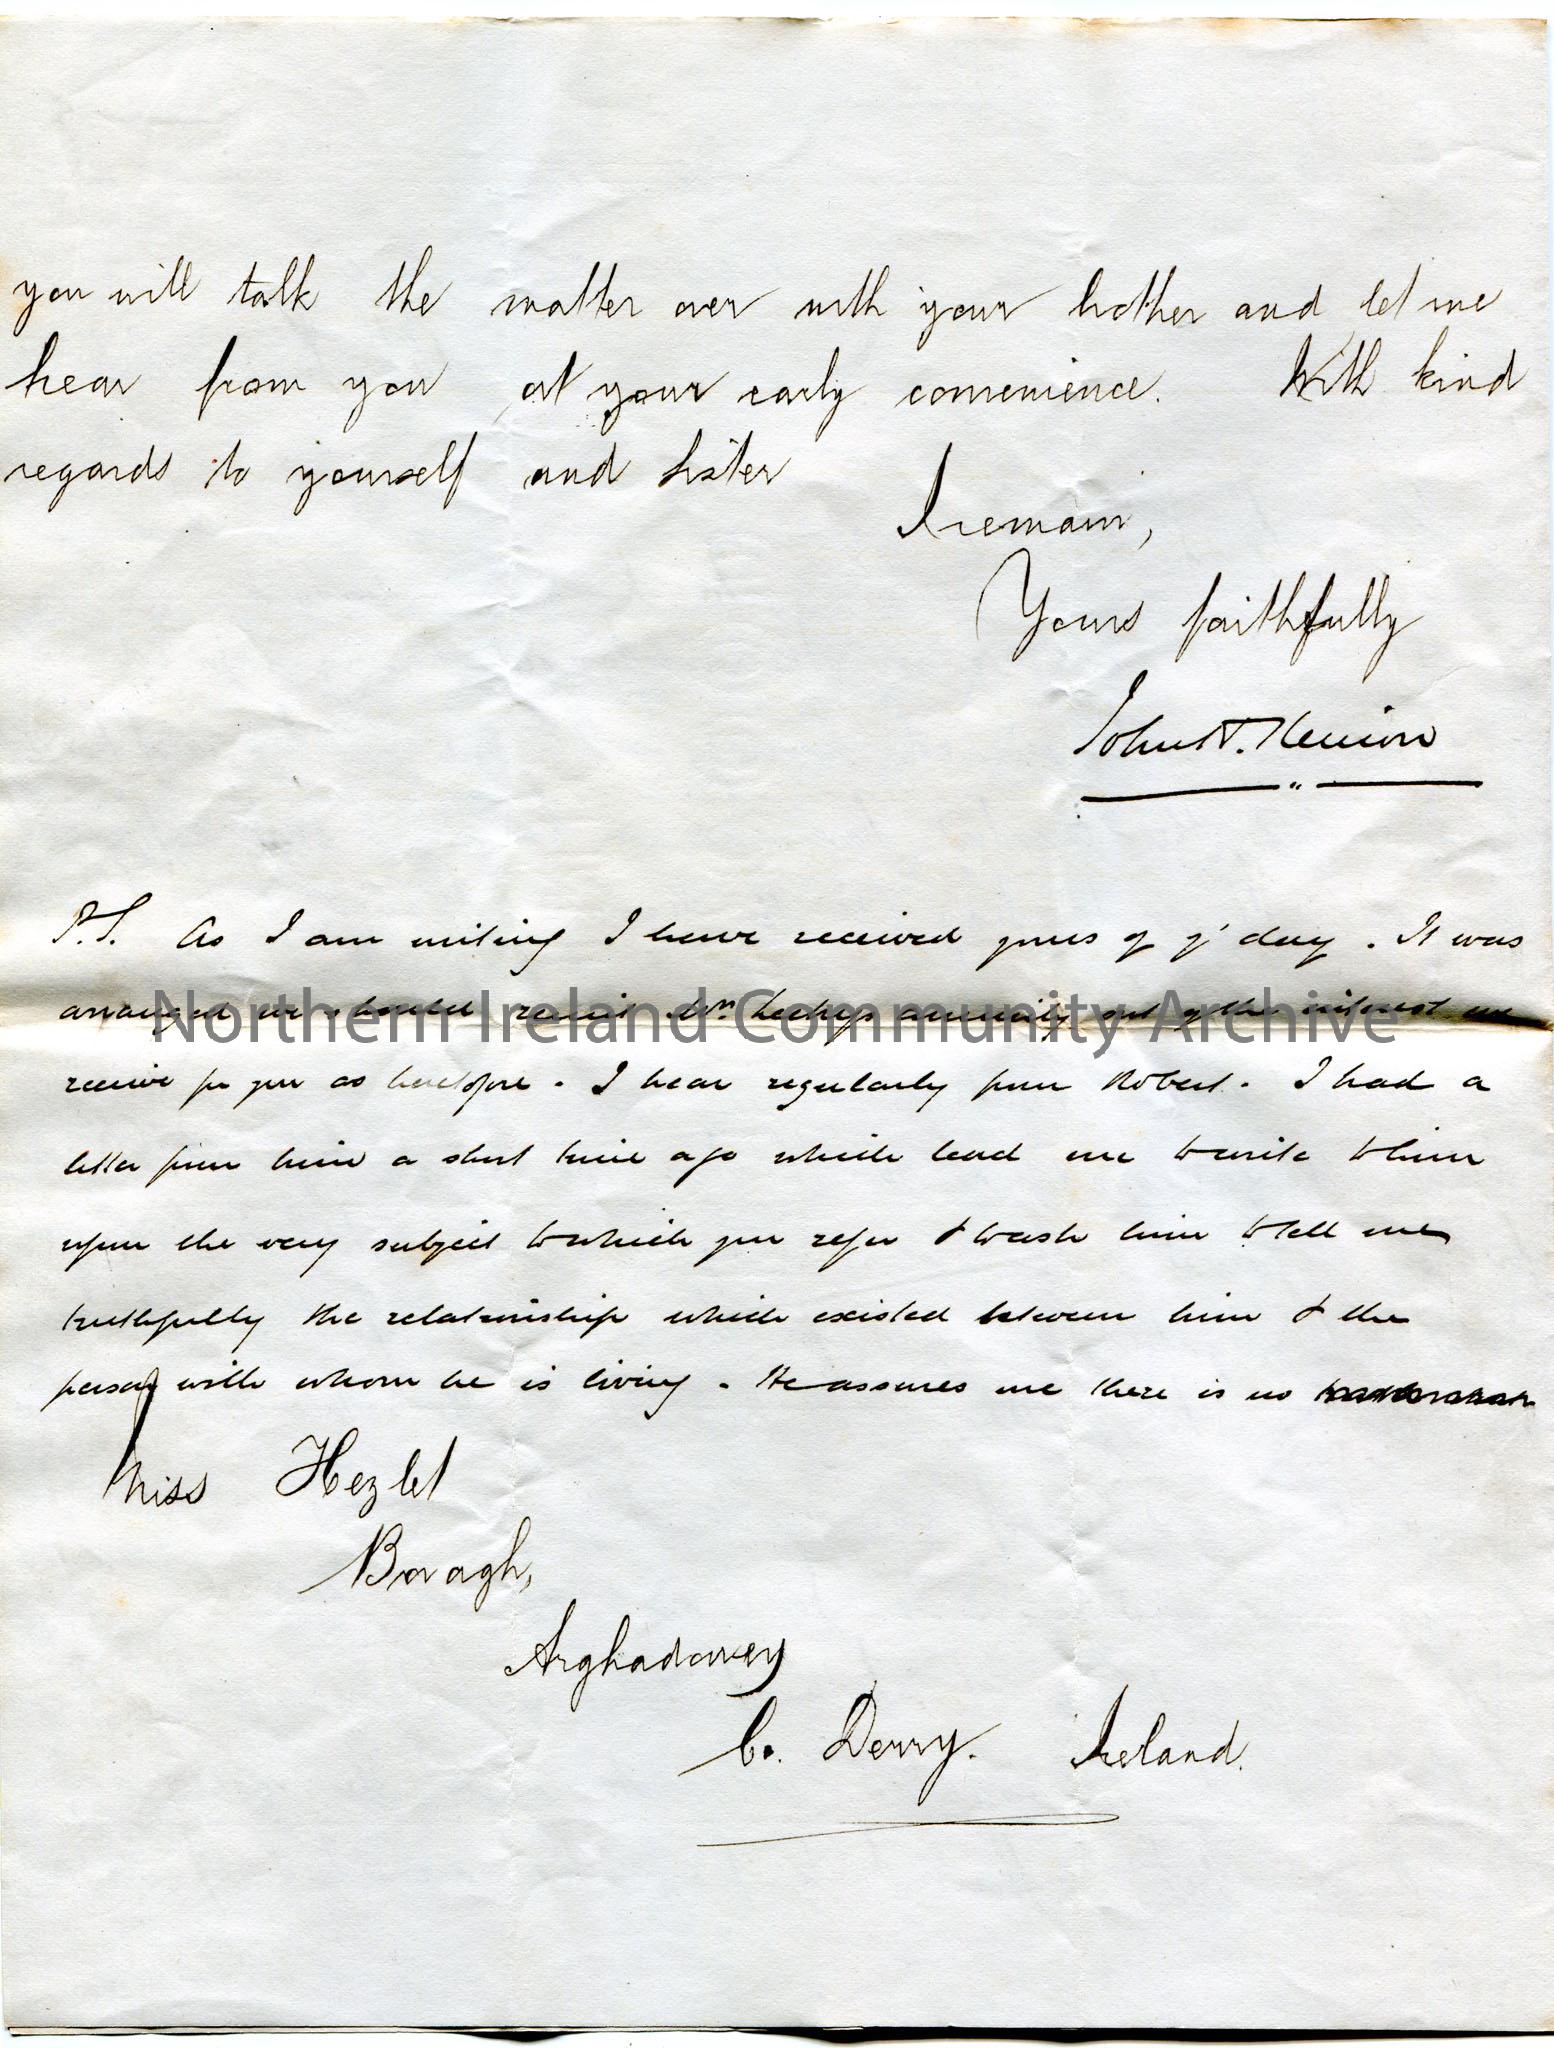 you will talk the matter over with your brother and let me
hear from you at your early convenience. With kind
regards to yourself and sister
I remain,
Yours faithfully
John
P.S. As I am writing I have received yours of y' day. It was
arranged we should remit annuity out of the interest we
receive for you as heretofore. I hear regularly from Robert. I had a
letter from him a short time ago which lead me to write to him
upon the very subject to which you refer & to ask him to tell me
truthfully the relationship which existed between him & the
person with whom he is living. He assures me there is no
Miss Hezlet
Bovagh,
Arghadowey
Co. Derry. Ireland.
Northern Ireland Community Archive